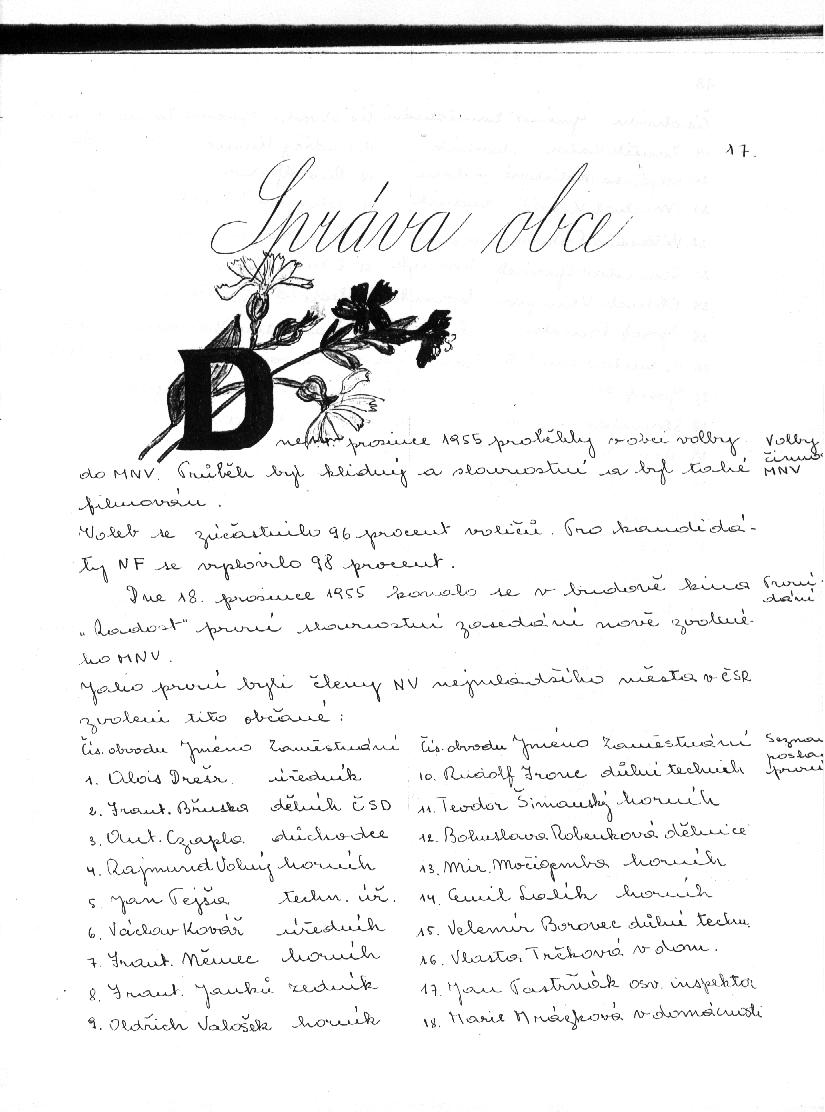 17.
Správa obce
Dne prosince 1955 proběhly v obci volby
Volby
do MNV. Průběh byl klidný a slavnostní a byl také
MNV
filmován.
Voleb se zúčastnilo 96 procent voličů. Pro kandidá-
ty NF se vyslovilo 98 procent.
Dne 18. prosince 1955 konalo se v budově kina
"Radost" první slavnostní zasedání nově zvolené-
ho MNV.
Jako první byli členy NV nejmladšího města v ČSR
zvoleni tito občané:
Čís. obvodu Jméno Zaměstnání
1. Alois Drešr. úředník
2. Frant. Břuska dělník ČSD
3. Ant. Czapla důchodce
4. Rajmund Volný horník
5. Jan Fejša techn. úř.
6. Václav Kovář úředník
7. Frant. Němec horník
8. Frant. Janků zedník
9. Oldřich Valošek horník
Čís. obvodu Jméno Zaměstnání
10. Rudolf důlní technik
11. Teodor Šimanský horník
12. Bohuslava Robenková dělnice
13. Mir. Močigemba horník
14. Emil Lalík horník
15. Velemír Borovec důlní techn.
16. Vlasta Trčková v dom.
17. Jan Pastrňák osv. inspektor
18. Marie Mrázková v domácnosti